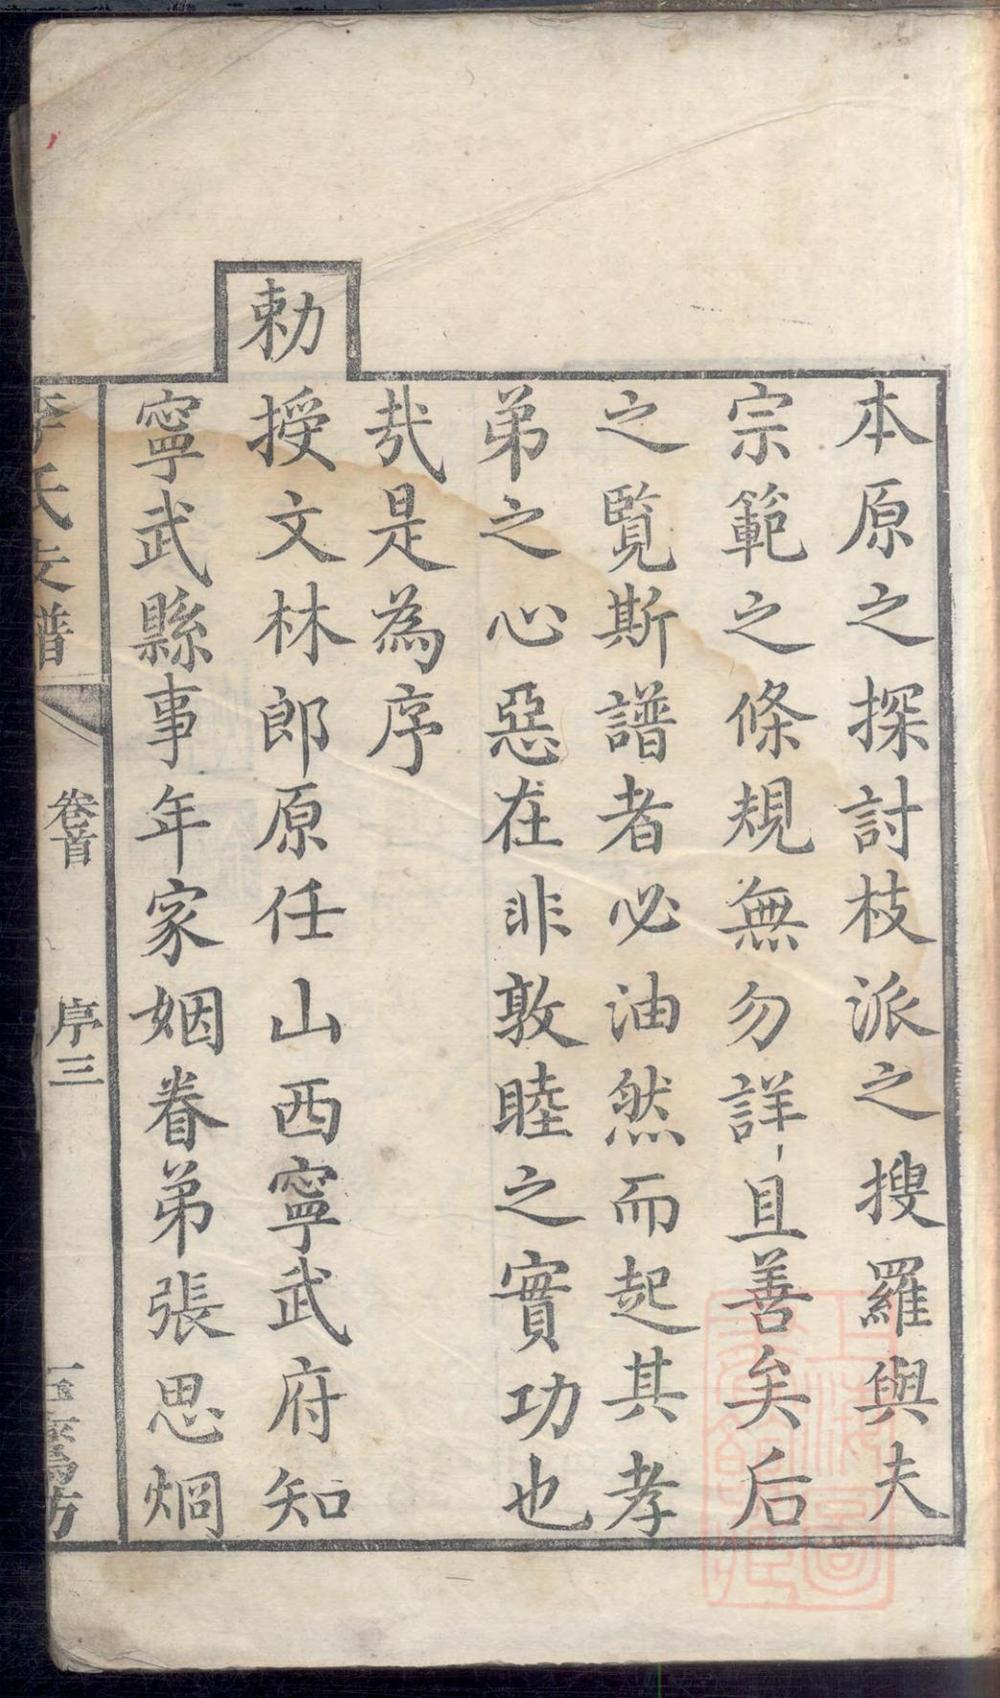 本原之探討枝派之搜羅與夫
宗範之條規無勿詳且善矣后
之覧斯譜者必油然而起其孝
弟之心惡在非敦睦之實功也
哉是為序
勅授文林郎原任山西寧武府知
寧武縣事年家姻眷弟張思烱
李氏支譜
卷首
序三